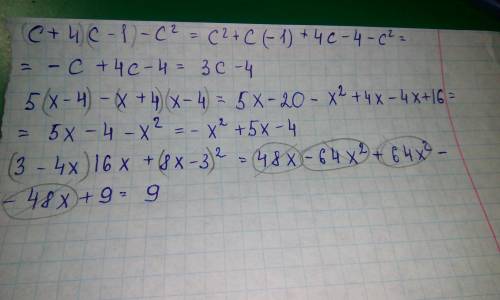 (c + 4)(c - 1) - c² = c² + c(-1) + 4c - 4 - c² =
= - c + 4c - 4 = 3c - 4
5(x - 4) - (x + 4)(x - 4) = 5x - 20 - x² + 4x - 4x + 16 =
= 5x - 4 - x² = - x² + 5x - 4
(3 - 4x)16x + (8x - 3)² = 48x - 64x² + 64x² -
- 48x + 9 = 9